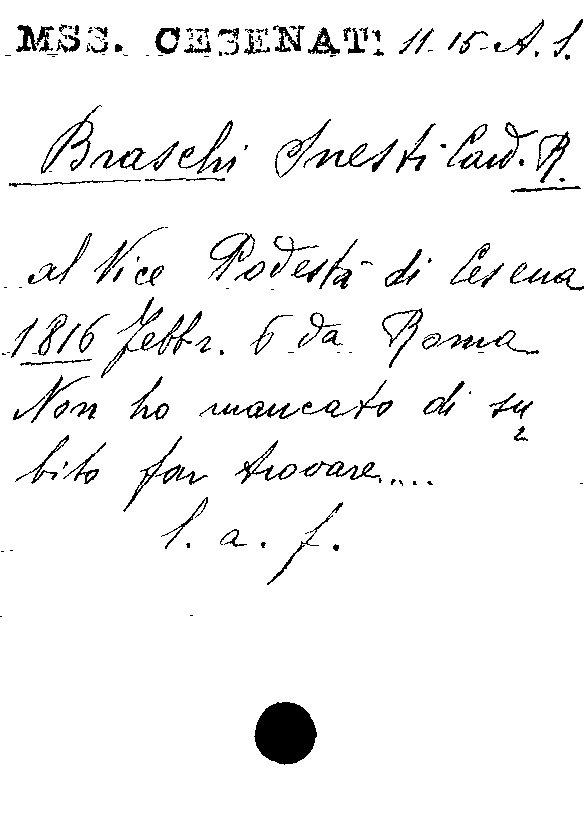 MSS. CESENATI 11-15-A. S.
Braschi Onesti Card. R.
al Vice Podestà di Cesena
1816 Febbr. 6 da Roma
Non ho mancato di su
bito far trovare....
l. a. f.